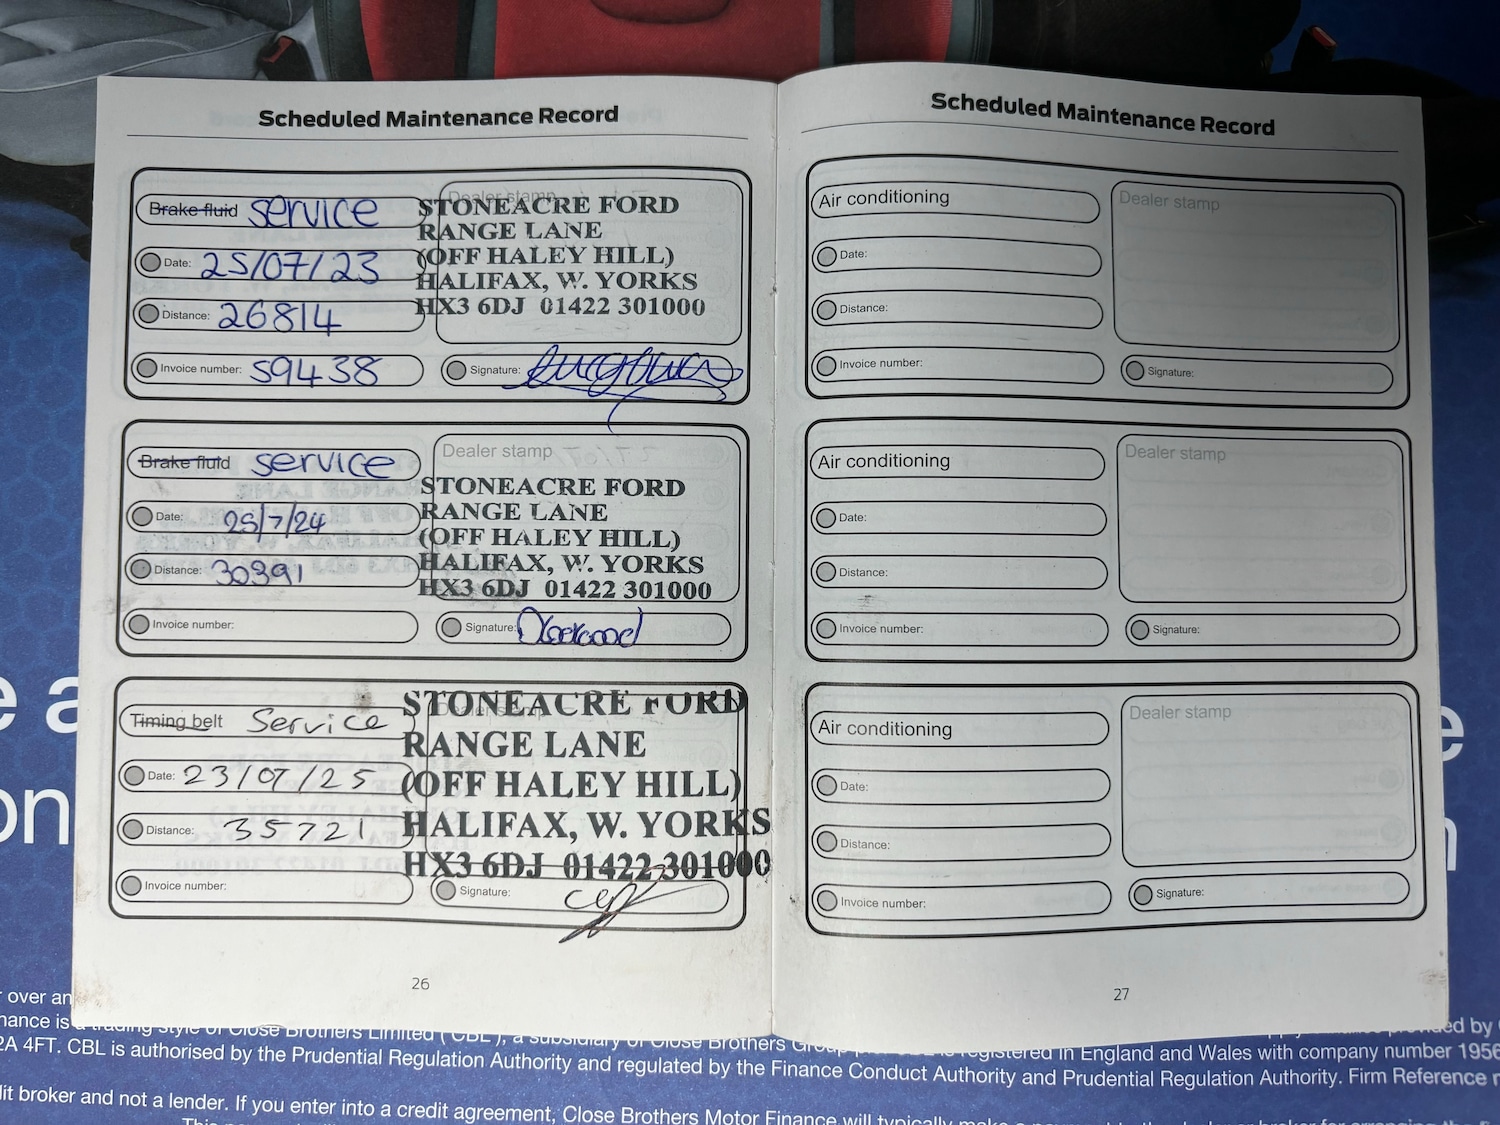 Scheduled Maintenance Record
Brake fluid service
Dealer stamp
STONEACRE FORD
RANGE LANE
(OFF HALEY HILL)
HALIFAX, W. YORKS
HX3 6DJ 01422 301000
Date: 25/07/23
Distance: 26814
Invoice number: 59438
Signature:
Brake fluid service
Dealer stamp
STONEACRE FORD
RANGE LANE
(OFF HALEY HILL)
HALIFAX, W. YORKS
HX3 6DJ 01422 301000
Date: 25/7/24
Distance: 30391
Invoice number:
Signature:
Timing belt Service
Dealer stamp
STONEACRE FORD
RANGE LANE
(OFF HALEY HILL)
HALIFAX, W. YORKS
HX3 6DJ 01422 301000
Date: 23/07/25
Distance: 35721
Invoice number:
Signature:
26
Scheduled Maintenance Record
Air conditioning
Dealer stamp
Date:
Distance:
Invoice number:
Signature:
Air conditioning
Dealer stamp
Date:
Distance:
Invoice number:
Signature:
Air conditioning
Dealer stamp
Date:
Distance:
Invoice number:
Signature:
27
r over an
nance is a trading style of Close Brothers Limited ("CBL"), a subsidiary of Close Brothers Group
registered in England and Wales with company number 1956
2A 4FT. CBL is authorised by the Prudential Regulation Authority and regulated by the Finance Conduct Authority and Prudential Regulation Authority. Firm Reference
dit broker and not a lender. If you enter into a credit agreement, Close Brothers Motor Finance will typically